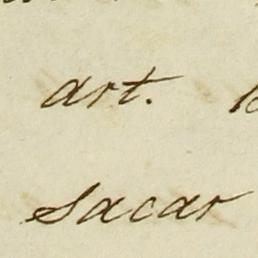 art.
sacar